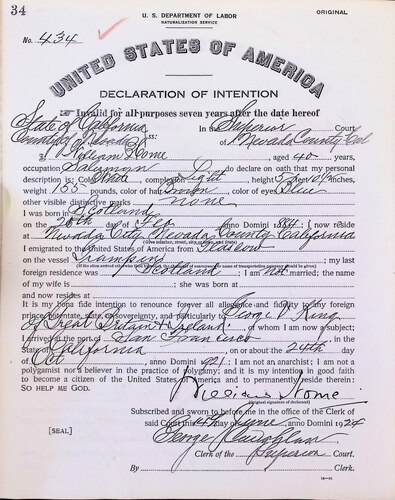 34
U. S. DEPARTMENT OF LABOR
NATURALIZATION SERVICE
ORIGINAL
No. 434
UNITED STATES OF AMERICA
DECLARATION OF INTENTION
Invalid for all purposes seven years after the date hereof
State of California
County of Nevada ss: In the Superior Court of Nevada County Cal
I, William Home, aged 40 years,
occupation, do declare on oath that my personal
description is: Color White, complexion Light, height 5 feet 10½ inches,
weight 155 pounds, color of hair Brown, color of eyes Blue
other visible distinctive marks none
I was born in Scotland
on the 26th day of Feb, Anno Domini 1884; I now reside
at Nevada City, Nevada County, California
(Give number, street, city or town, and State)
I emigrated to the United States of America from Glasgow
on the vessel; my last
foreign residence was Scotland; I am not married; the name
of my wife is; she was born at
and now resides at
It is my bona fide intention to renounce forever all allegiance and fidelity to any foreign
prince, potentate, state, or sovereignty, and particularly to George V King
of Great Britain & Ireland, of whom I am now a subject;
I arrived at the port of San Francisco, in the
State of California, on or about the 24th day
of Oct, Anno Domini 1921; I am not an anarchist; I am not a
polygamist nor a believer in the practice of polygamy; and it is my intention in good faith
to become a citizen of the United States of America and to permanently reside therein:
SO HELP ME GOD.
William Home
(Original signature of declarant)
Subscribed and sworn to before me in the office of the Clerk of
said Court this day of June, anno Domini 1924
[SEAL]
George
Clerk of the Superior Court.
By, Clerk.